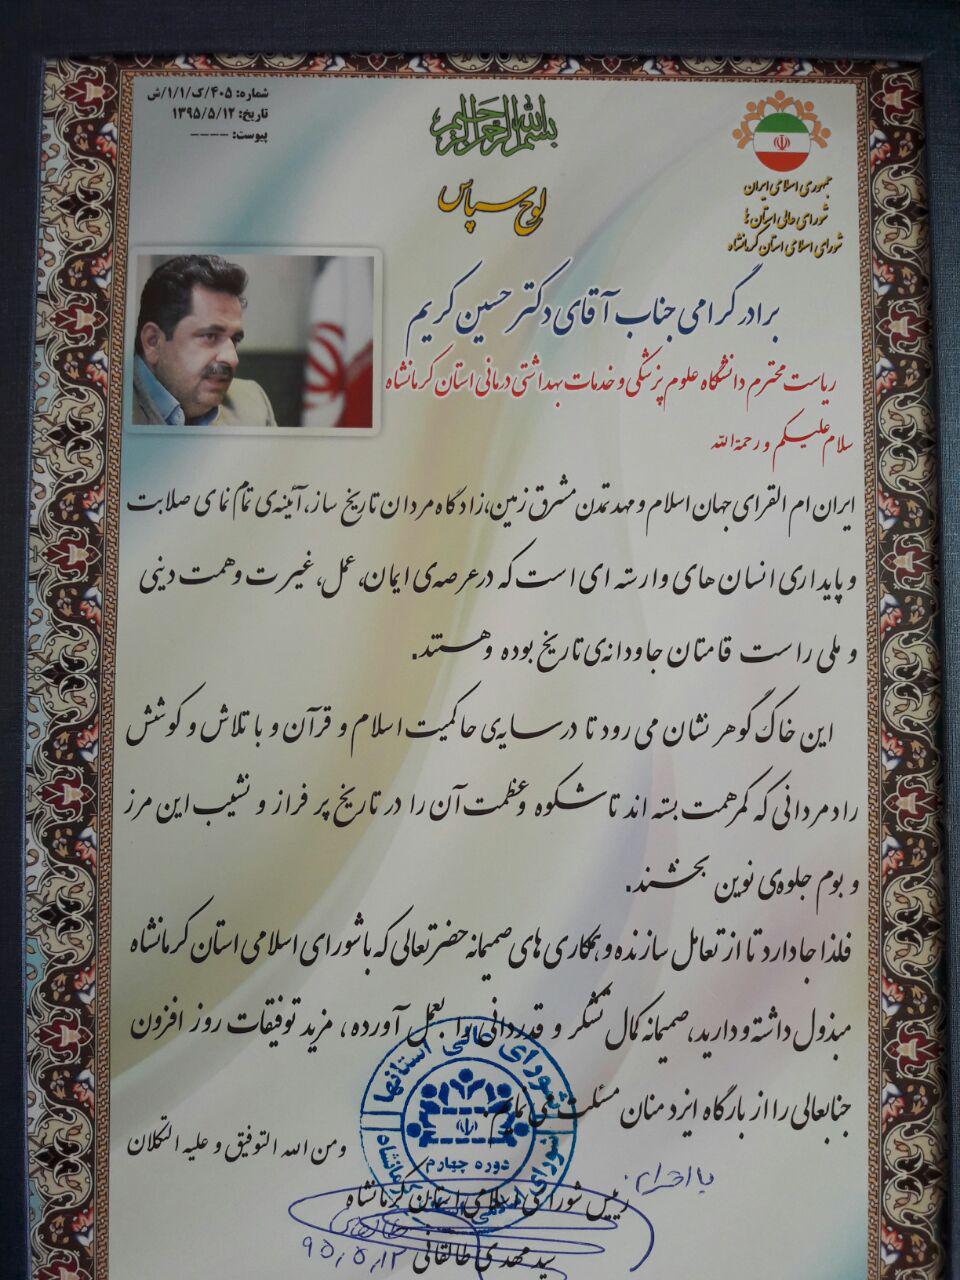 شماره: ۴۰۵/ک/۱/۱/ش
تاریخ: ۱۳۹۵/۵/۱۲
پیوست: ----
بسم الله الرحمن الرحیم
جمهوری اسلامی ایران
شورای عالی استان ها
شورای اسلامی استان کرمانشاه
لوح سپاس
برادر گرامی جناب آقای دکتر حسین کریم
ریاست محترم دانشگاه علوم پزشکی و خدمات بهداشتی درمانی استان کرمانشاه
سلام علیکم و رحمة الله
ایران ام القرای جهان اسلام و مهد تمدن مشرق زمین، زادگاه مردان تاریخ ساز، آئینه‌ی تمام نمای صلابت
و پایداری انسان های وارسته ای است که در عرصه‌ی ایمان، عمل، غیرت و همت دینی
و ملی راست قامتان جاودانه‌ی تاریخ بوده و هستند.
این خاک گوهر نشان می رود تا در سایه‌ی حاکمیت اسلام و قرآن و با تلاش و کوشش
رادمردانی که کمر همت بسته اند تا شکوه و عظمت آن را در تاریخ پر فراز و نشیب این مرز
و بوم جلوه‌ی نوین بخشند.
فلذا جا دارد تا از تعامل سازنده و همکاری های صمیمانه حضرتعالی که با شورای اسلامی استان کرمانشاه
مبذول داشته و دارید، صمیمانه کمال تشکر و قدردانی را بعمل آورده، مزید توفیقات روز افزون
جنابعالی را از بارگاه ایزد منان مسئلت می نمایم.
و من الله التوفیق و علیه التکلان
شورای عالی استانها
دوره چهارم
شورای اسلامی استان کرمانشاه
با احترام
رییس شورای اسلامی استان کرمانشاه
سید مهدی طالقانی
۹۵،۵،۱۲